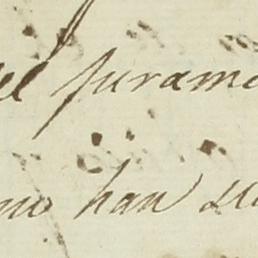 el jurame
no han su